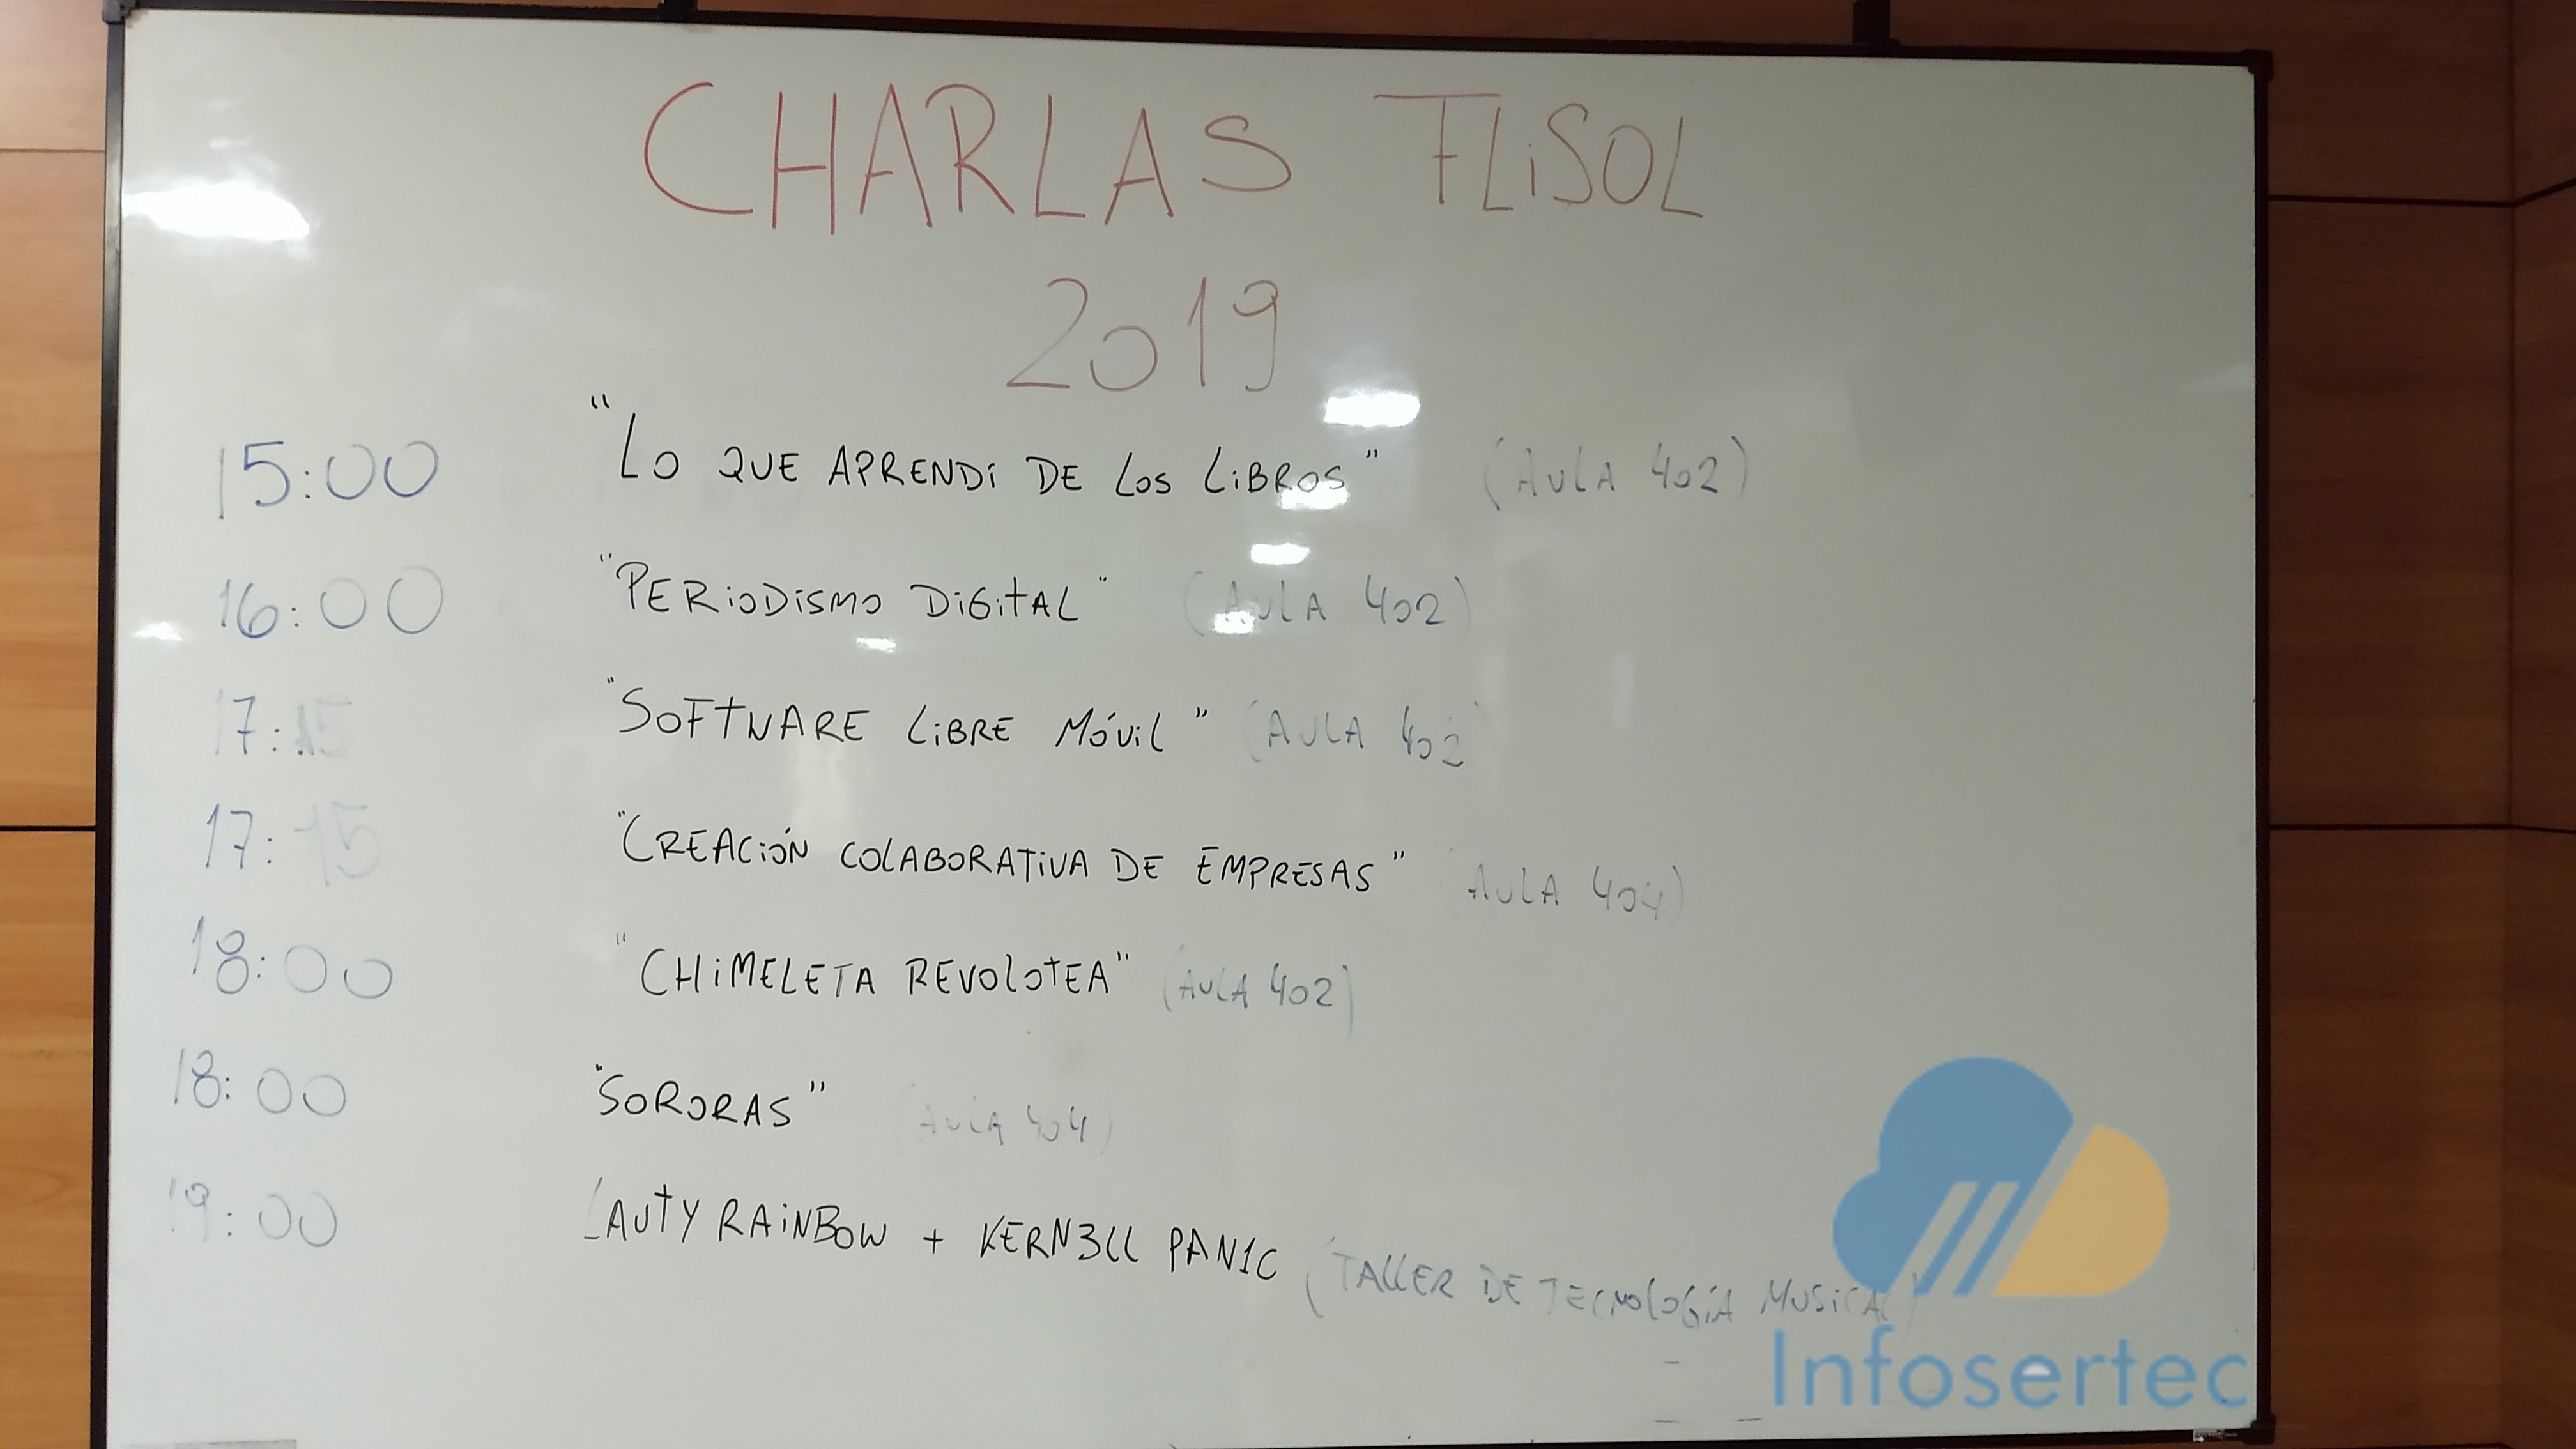 CHARLAS FLiSOL
2019
15:00 "Lo QUE APRENDí DE Los LiBROS" (AULA 402)
16:00 "PERiODiSMO DiGitAL" (AULA 402)
17:15 "SOFtWARE LiBRE MóviL" (AULA 402)
17:15 "CREACióN COLABORATiVA DE EMPRESAS" (AULA 404)
18:00 "CHiMELETA REVOLOTEA" (AULA 402)
18:00 "SORORAS" (AULA 404)
19:00 LAUTY RAiNBOW + KERN3LL PAN1C (TALLER DE TECNOLOGíA MUSiCAL)
Infosertec